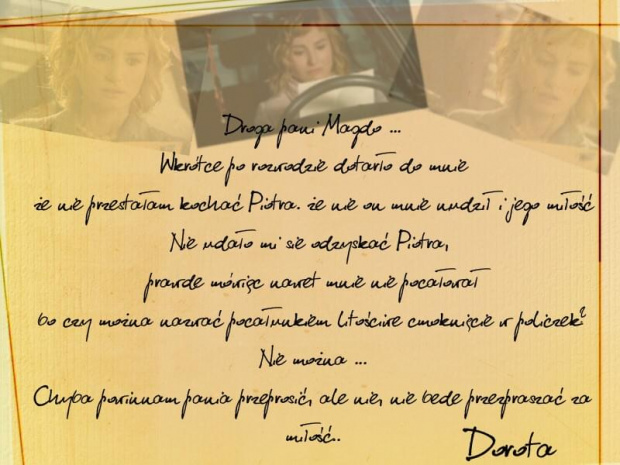 Droga pani Magdo ...
Wkrótce po rozwodzie dotarło do mnie
że nie przestałam kochać Piotra. że nie on mnie nudził i jego miłość
Nie udało mi sie odzyskać Piotra,
prawde mówiąc nawet mnie nie pocałował
bo czy można nazwać pocałunkiem litościwe cmoknięcie w policzek?
Nie można ...
Chyba powinnam pania przeprosić, ale nie, nie bede przepraszać za
miłość..
Dorota